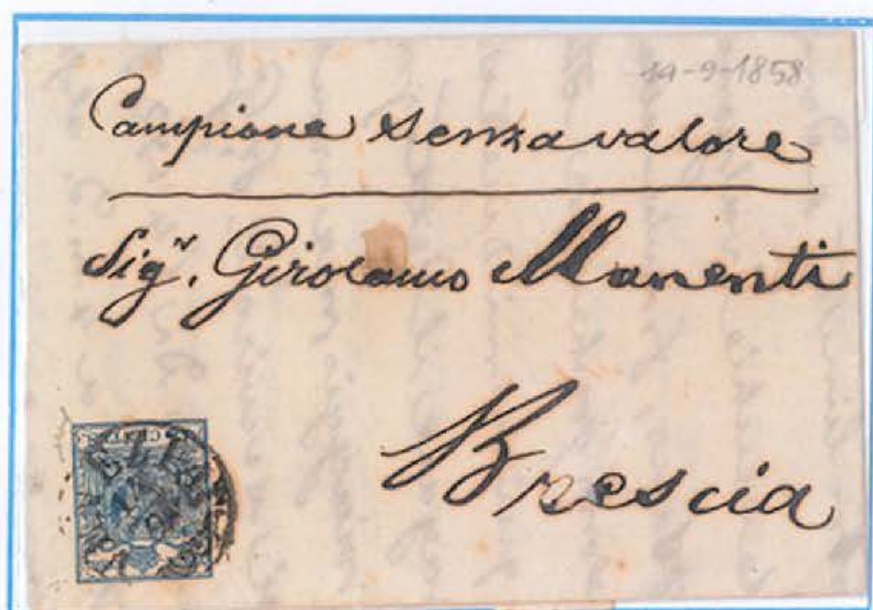 14-9-1858
Campione senza valore
Sig.r Girolamo Manenti
Brescia